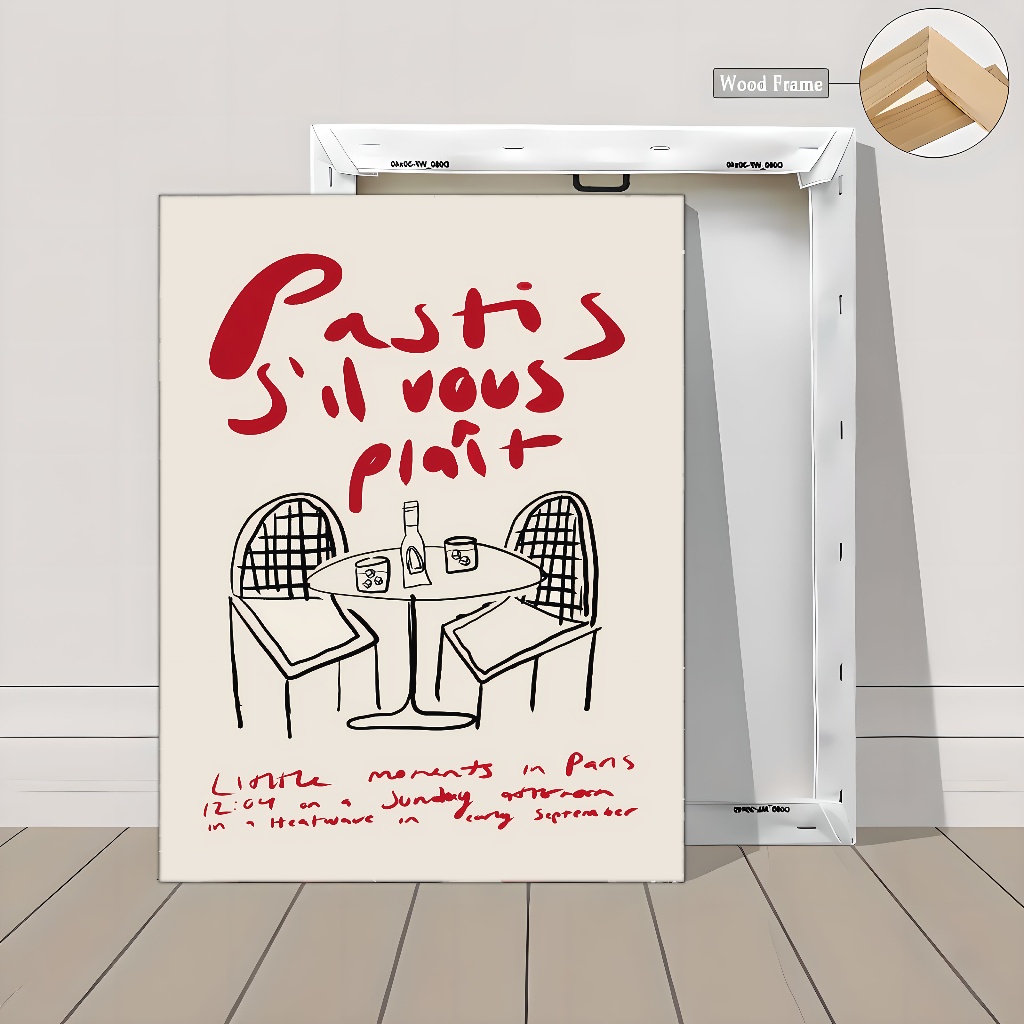 Wood Frame
Pastis
s'il vous
plaît
Little moments in Paris
12:04 on a Sunday afternoon
in a Heatwave in early September